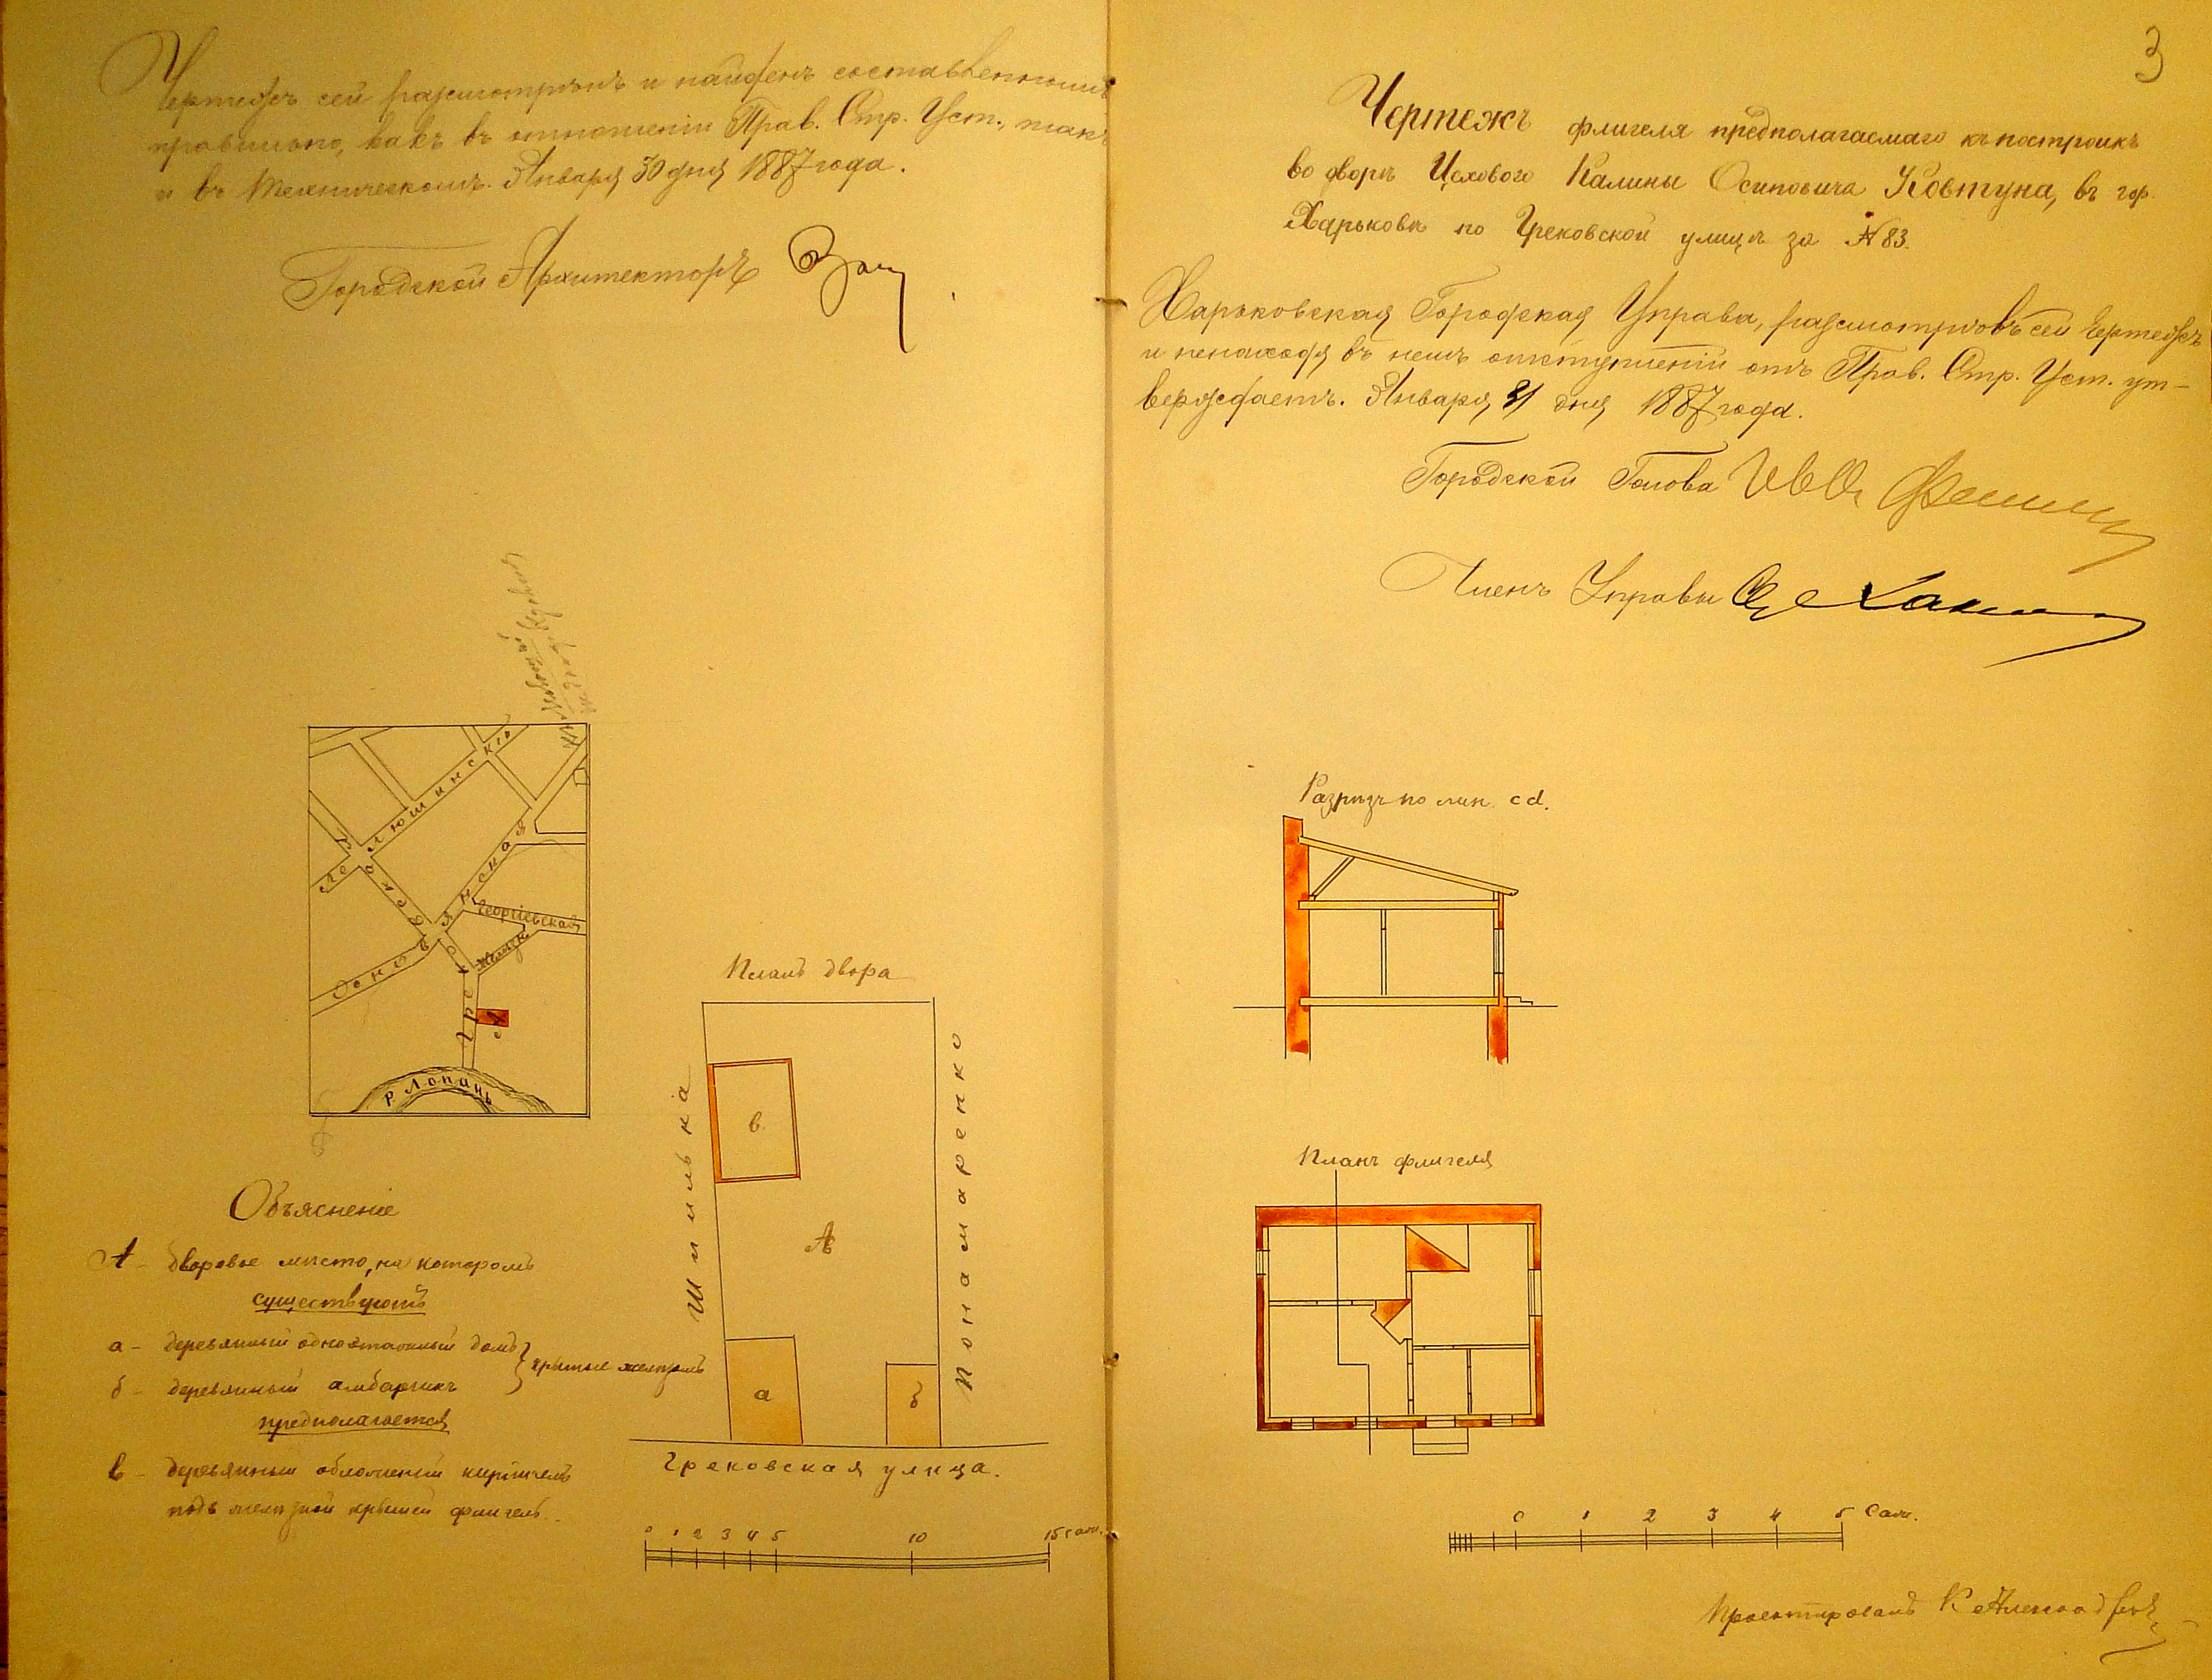 Чертежъ сей разсмотрѣнъ и найденъ составленнымъ
правильно, какъ въ отношеніи Прав. Стр. Уст., такъ
и въ техническомъ. Января 30 дня 1887 года.
Городской Архитекторъ
Лев
Основ
Георгіевская
Грек
А
р. Лопань
Объясненіе
А – дворовое мѣсто, на которомъ
существуютъ
а – деревянный одноэтажный домъ
б – деревянный амбарчикъ
крытые желѣзомъ
предполагается
в – деревянный обложеный кирпичемъ
подъ желѣзной крышей флигель.
Планъ двора
Шпилька
Понамаренко
в.
А
а
б
Грековская улица.
0 1 2 3 4 5 10 15 саж.
3
Чертежъ флигеля предполагаемаго къ постройкѣ
во дворѣ Цехового Калины Осиповича Ковтуна, въ гор.
Харьковѣ по Грековской улицѣ за № 83.
Харьковская Городская Управа, разсмотрѣвъ сей чертежъ
и ненаходя въ немъ отступленій отъ Прав. Стр. Уст. ут-
верждаетъ. Января 31 дня 1887 года.
Городской Голова
Членъ Управы
Разрѣзъ по лин. cd.
Планъ флигеля
0 1 2 3 4 5 Саж.
Проектировалъ К